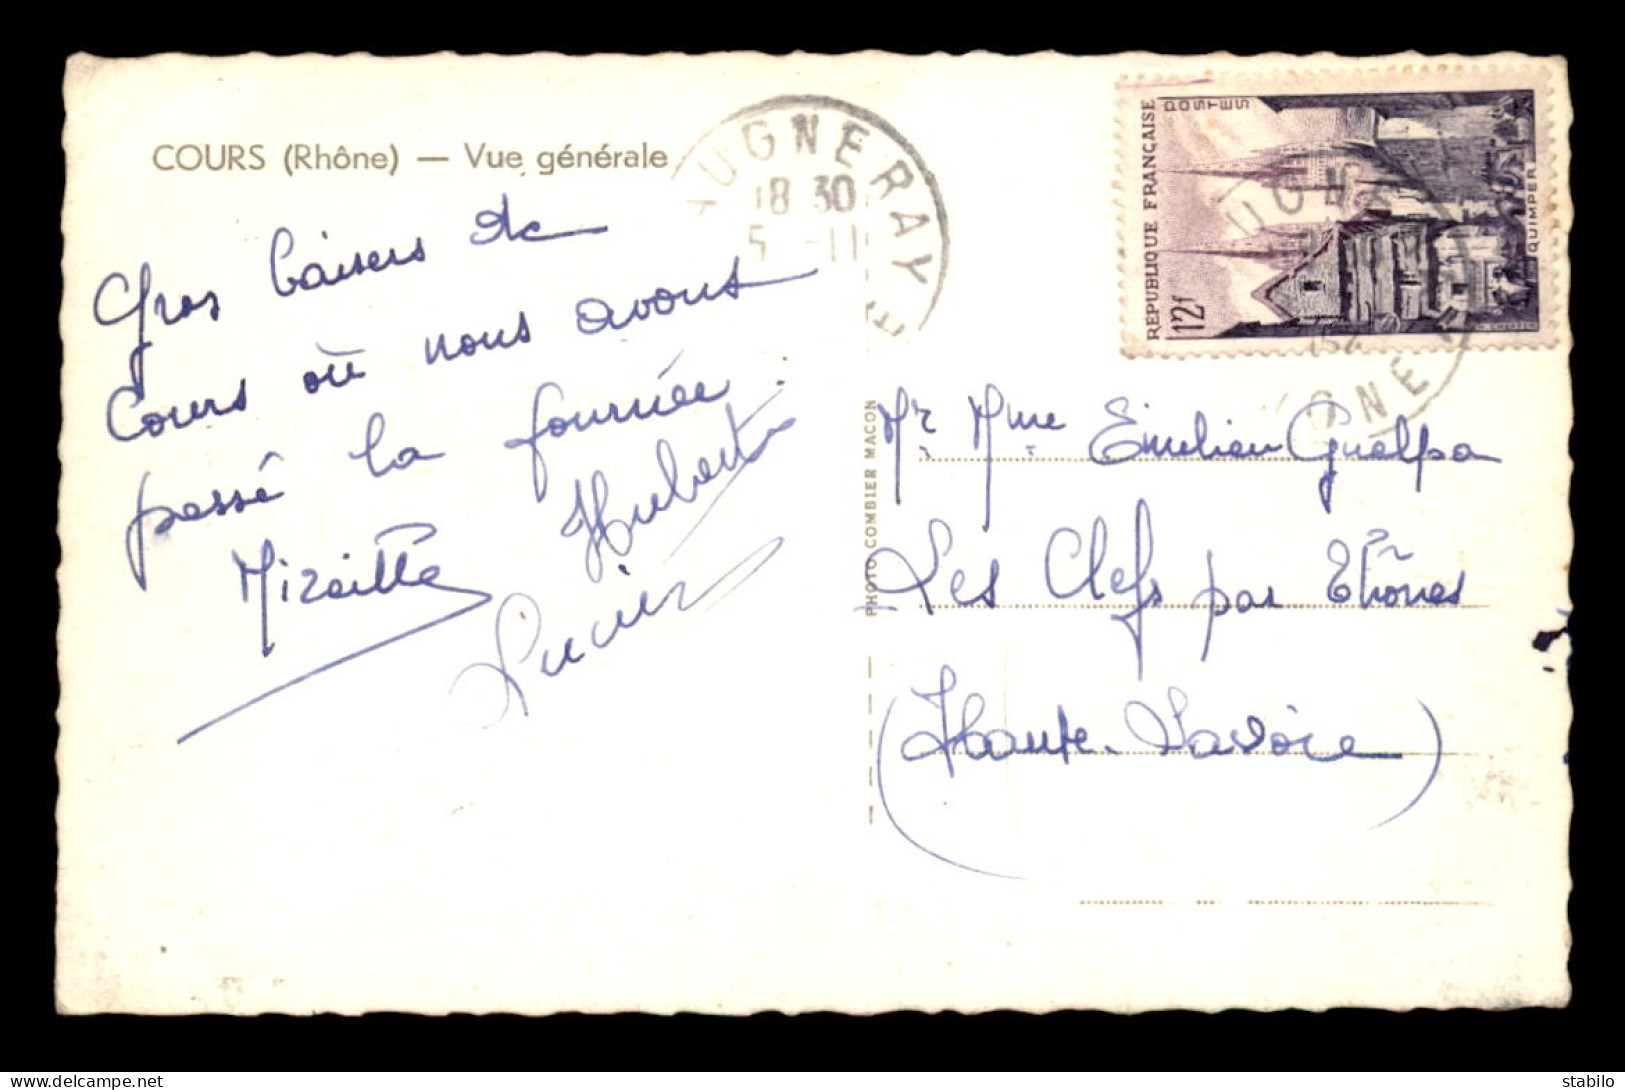 COURS (Rhône) — Vue générale
Gros baisers de
Cours où nous avons
passé la journée.
Mireille Hubert
Lucien
PHOTO COMBIER MACON
AUGNERAY
18 30
5 -11
RÉPUBLIQUE FRANÇAISE
POSTES
12f
QUIMPER
Mr Mme Emilien Guelpa
Les Clefs par Thônes
(Haute-Savoie)
stabilo